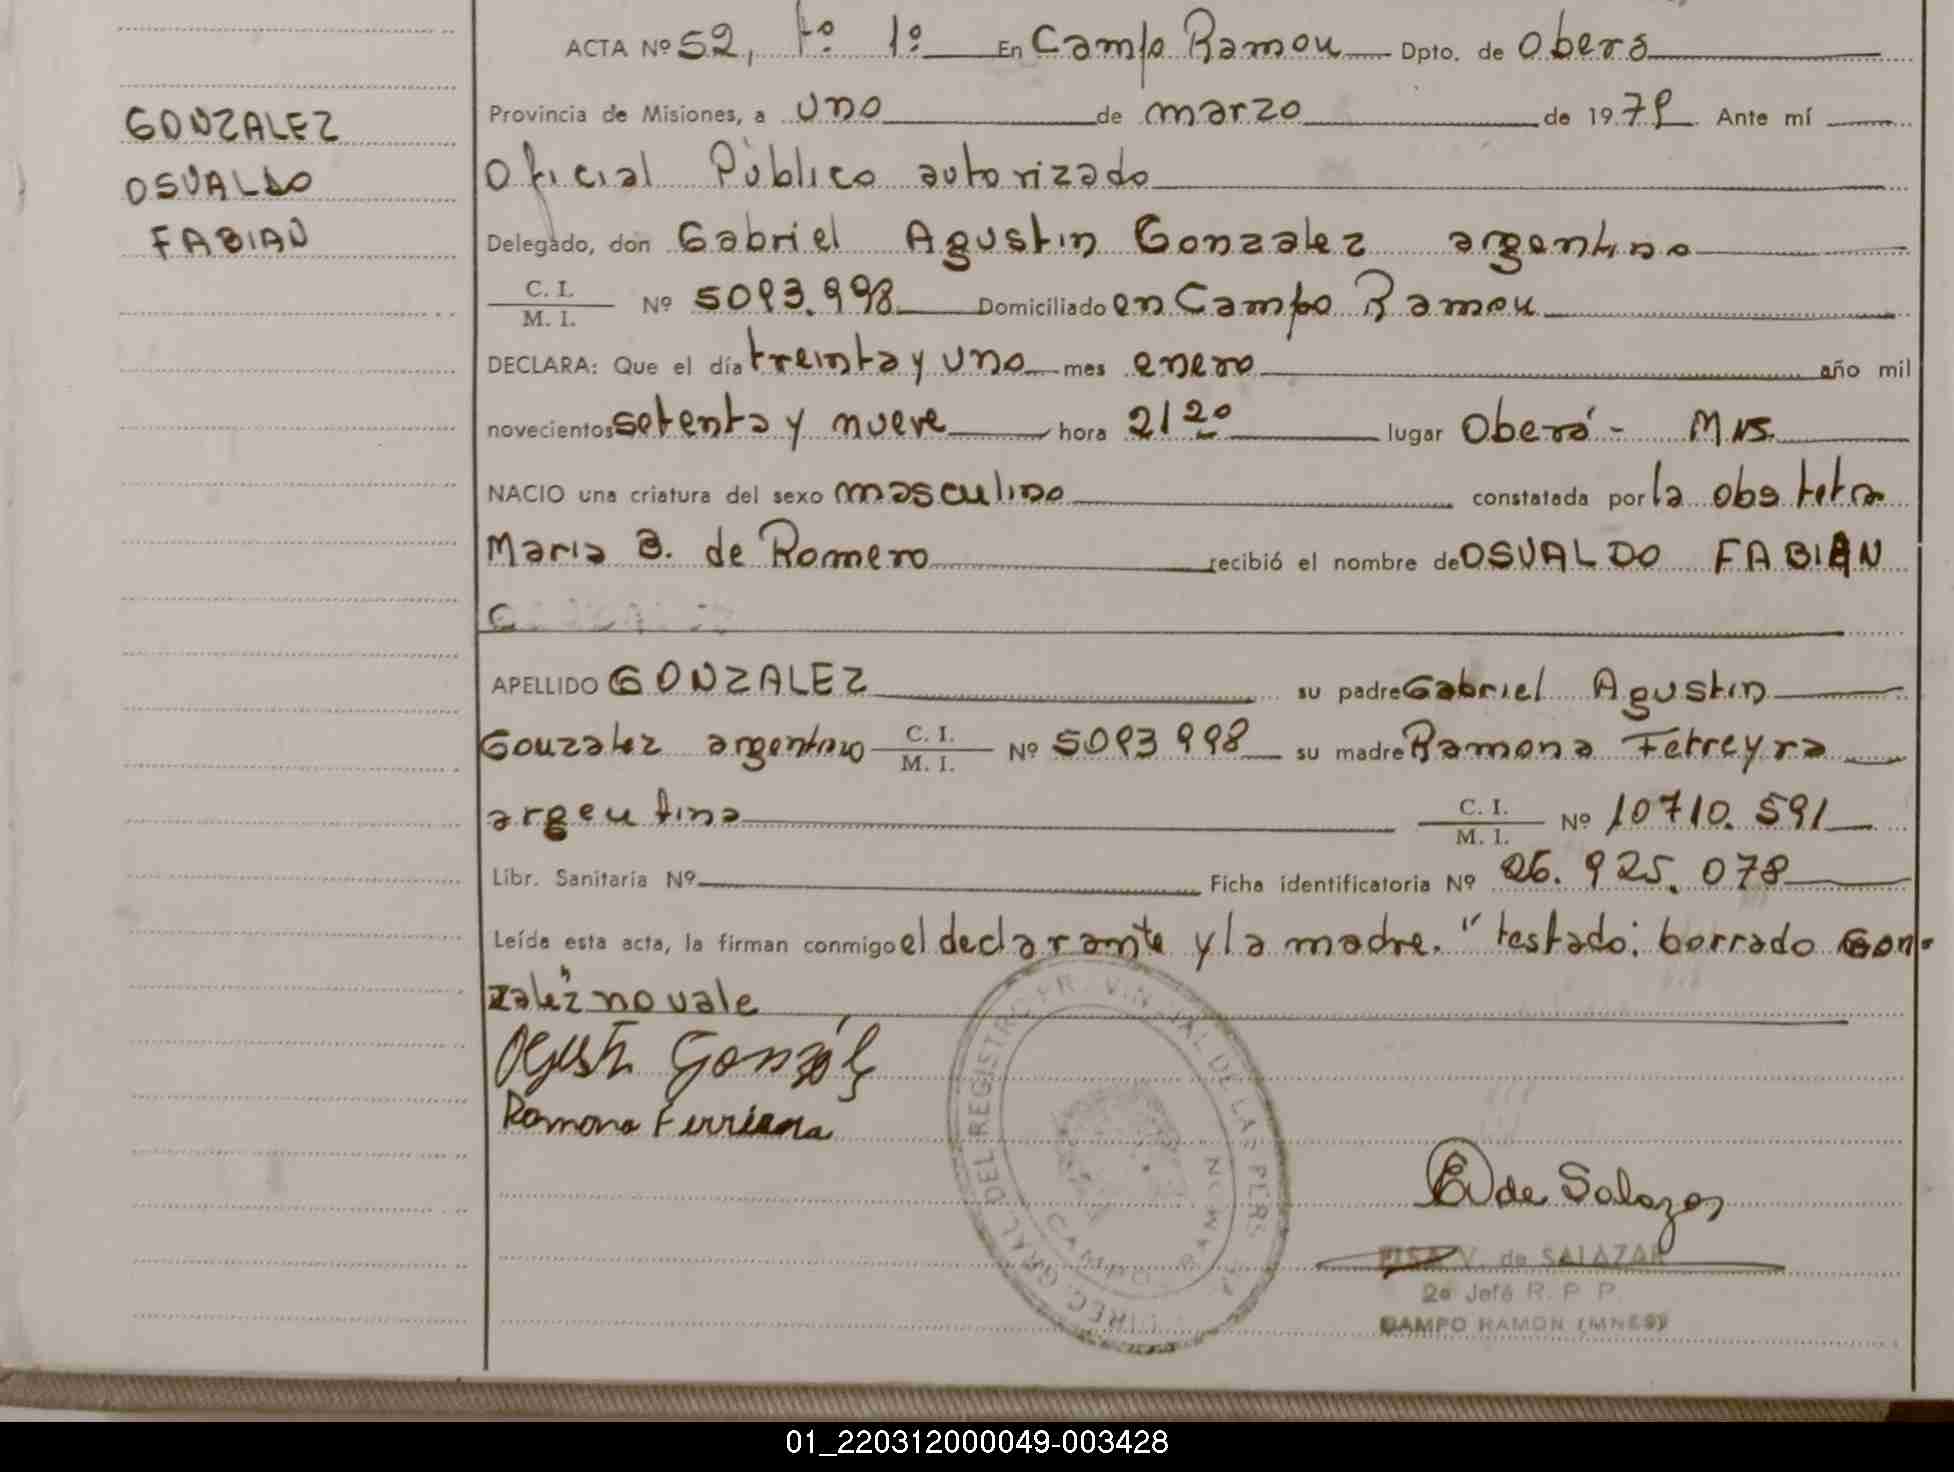 ACTA Nº 52, tº 1º En Campo Ramon Dpto. de Oberá
Provincia de Misiones, a uno de marzo de 1979 Ante mí
Oficial Público autorizado
Delegado, don Gabriel Agustin Gonzalez argentino
C. I.
M. I. Nº 5093.998 Domiciliado en Campo Ramon
DECLARA: Que el día treinta y uno mes enero año mil
novecientos setenta y nueve hora 21 20 lugar Oberá - Mns.
NACIO una criatura del sexo masculino constatada por la obstetra
Maria B. de Romero recibió el nombre de OSVALDO FABIAN
APELLIDO GONZALEZ su padre Gabriel Agustin
Gonzalez argentino C. I.
M. I. Nº 5093998 su madre Ramona Ferreyra
argentina C. I.
M. I. Nº 10710.591
Libr. Sanitaria Nº Ficha identificatoria Nº 26.925.078
Leída esta acta, la firman conmigo el declarante y la madre. "testado: borrado Gon-
zalez" no vale
GONZALEZ
OSVALDO
FABIAN
Gonzalez
Ramona Ferriera
DIREC. GRAL. DEL REGISTRO PROVINCIAL DE LAS PERS.
CAMPO RAMON
E V de Salazar
ELSA V. de SALAZAR
2º Jefe R. P. P.
CAMPO RAMON (MNES)
01_220312000049-003428